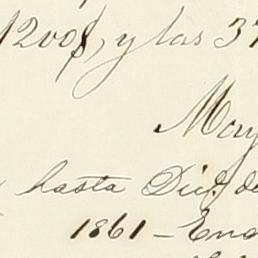 1200$, y las 37
May
hasta Dic. de
1861 - Ene